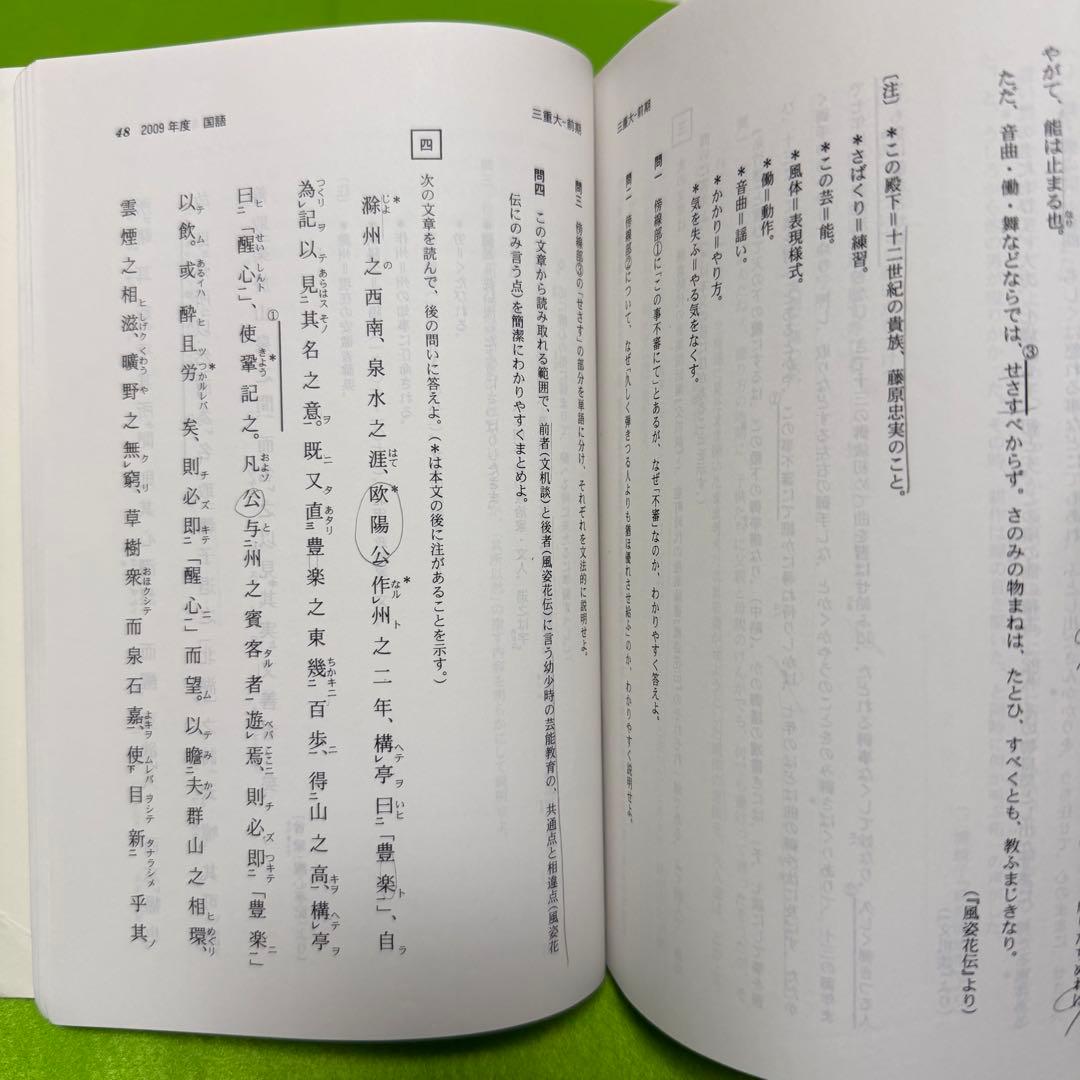 やがて、能は止まる也。
ただ、音曲・働・舞などならでは、せさすべからず。さのみの物まねは、たとひ、すべくとも、教ふまじきなり。
③
(『風姿花伝』より)
〔注〕 *この殿下＝十二世紀の貴族、藤原忠実のこと。
*さばくり＝練習。
*この芸＝能。
*風体＝表現様式。
*働＝動作。
*音曲＝謡い。
*かかり＝やり方。
*気を失ふ＝やる気をなくす。
問一 傍線部①に「この事不審にて」とあるが、なぜ「不審」なのか、わかりやすく答えよ。
問二 傍線部②について、なぜ「久しく弾きつる人よりも猶ほ優れさせ給ふ」のか、わかりやすく説明せよ。
三重大-前期
三重大-前期
問三 傍線部③の「せさす」の部分を単語に分け、それぞれを文法的に説明せよ。
問四 この文章から読み取れる範囲で、前者(文机談)と後者(風姿花伝)に言う幼少時の芸能教育の、共通点と相違点(風姿花
伝にのみ言う点)を簡潔にわかりやすくまとめよ。
四
次の文章を読んで、後の問いに答えよ。(*は本文の後に注があることを示す。)
*滁州之西南、泉水之涯、*欧陽公作*州之二年、構亭曰「豊楽」、自
為記以見其名之意。既又直豊楽之東幾百歩、得山之高、構亭
曰「醒心」、使*鞏記之。凡公与州之賓客者遊焉、則必即「豊楽」
①
以飲。或酔且*労矣、則必即「醒心」而望。以瞻夫群山之相環、
雲煙之相滋、曠野之無窮、草樹衆而泉石嘉、使目新乎其
48 2009年度 国語